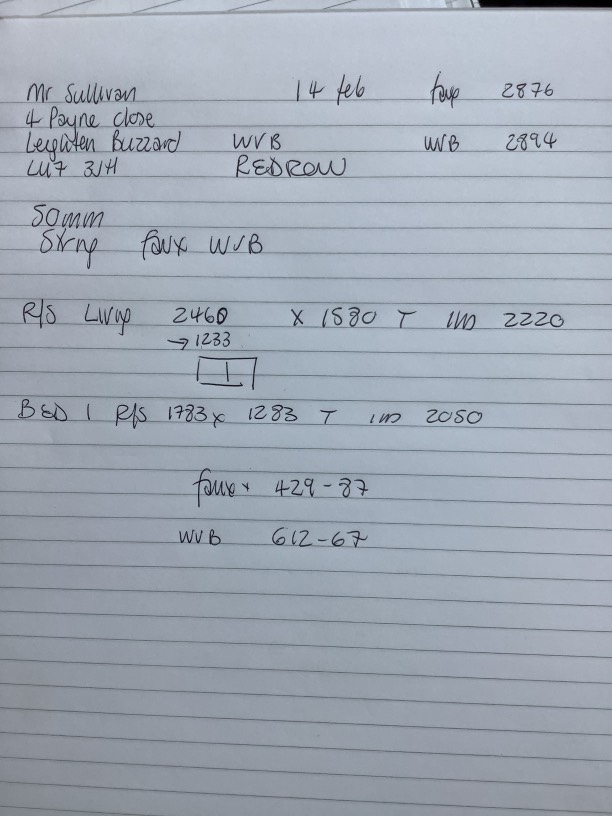 Mr Sullivan 14 feb faux 2876
4 Payne close
Leighten Buzzard WVB WVB 2894
LU7 3JH REDROW
50mm
String faux WVB
R/S Living 2460 x 1580 T IID 2220
→ 1233
BED 1 R/S 1783 x 1283 T IID 2050
faux + 429-87
WVB 612-67